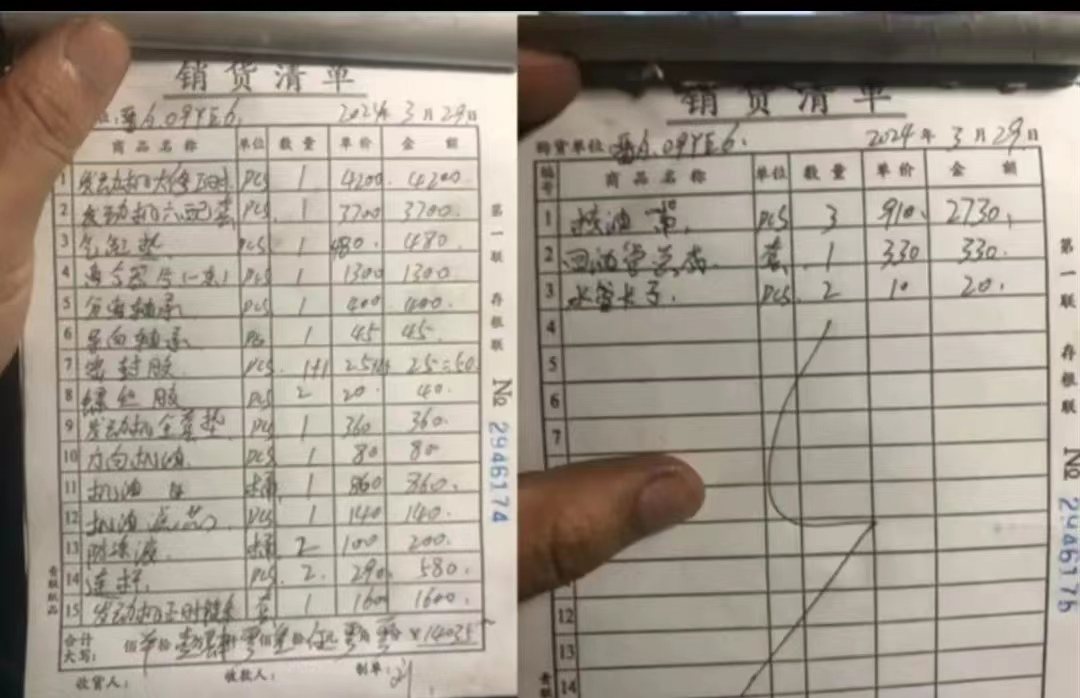 销货清单
晋A.09YE6. 2024年3月29日
商品名称 单位 数量 单价 金额
1 发动机大修工时 PCS 1 4200. 4200.
2 发动机六配套 PCS 1 3700 3700.
3 气缸垫 PCS 1 480. 480.
4 PCS 1 1300 1300.
5 分离轴承 PCS 1 400 400.
6 导向轴承 PCS 1 45 45.
7 密封胶 PCS 1+1 25 25=50.
8 螺丝胶 PCS 2 20. 40.
9 发动机全套垫 PCS 1 360 360.
10 方向机油 PCS 1 80 80.
11 机油 桶 1 860 860.
12 机油滤芯 PCS 1 140 140.
13 防冻液 桶 2 100 200.
14 连杆. PCS. 2. 290 580.
15 发动机正时链条 套 1 1600 1600.
合计
大写: ¥14035
收货人: 收款人: 制单: 刘
第一联 存根联
No 2946174
销货清单
购货单位 晋A.09YE6. 2024年3月29日
编号 商品名称 单位 数量 单价 金额
1 PCS 3 910. 2730.
2 回油管总成. 套. 1 330 330.
3 水管卡子. PCS. 2 10 20.
4
5
6
7
12
13
14
第一联 存根联
No 2946175